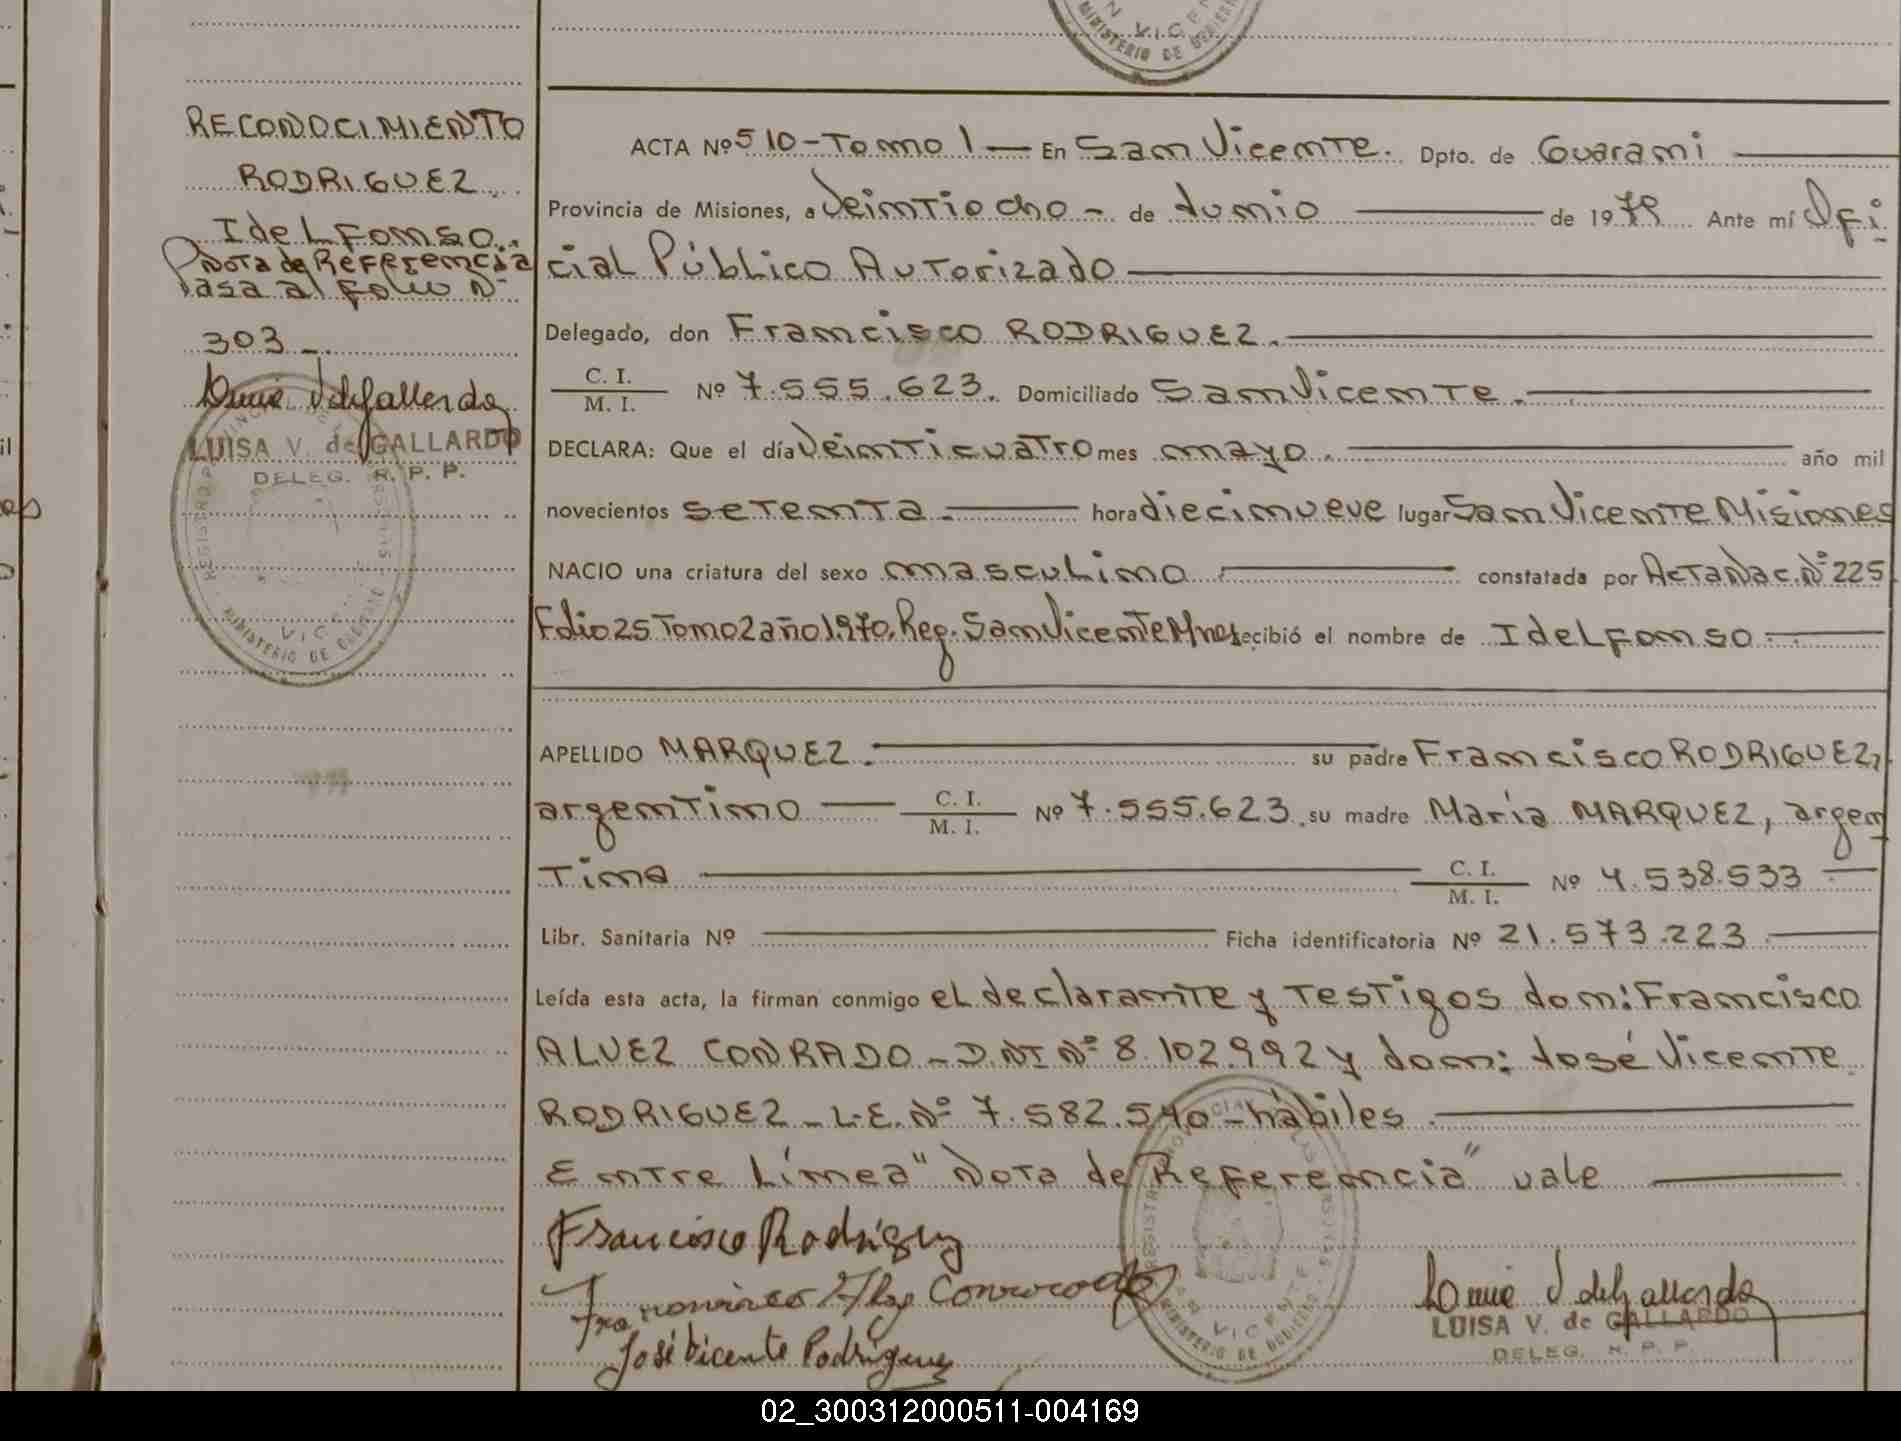 VICEN
MINISTERIO DE GOBIERNO
RECONOCIMIENTO
RODRIGUEZ
Idelfonso.
Nota de Referencia
Pasa al folio Nº
303 -
LUISA V. de GALLARDO
DELEG. R. P. P.
VIC
MINISTERIO DE GOBIERNO
ACTA Nº 510 - Tomo 1 — En San Vicente. Dpto. de Guarani —
Provincia de Misiones, a Veintiocho - de Junio — de 1979 Ante mí Ofi
cial Público Autorizado —
Delegado, don Francisco RODRIGUEZ. —
C. I.
M. I. Nº 7.555.623. Domiciliado San Vicente. —
DECLARA: Que el día Veinticuatro mes mayo. — año mil
novecientos setenta. — hora diecinueve lugar San Vicente Misiones
NACIO una criatura del sexo masculino — constatada por Acta Nac. Nº 225
Folio 25 Tomo 2 año 1.970. Reg. San Vicente Mnes recibió el nombre de Idelfonso —
APELLIDO MARQUEZ. — su padre Francisco RODRIGUEZ,
argentino — C. I.
M. I. Nº 7.555.623 su madre María MARQUEZ, argen
tina — C. I.
M. I. Nº 4.538.533 —
Libr. Sanitaria Nº — Ficha identificatoria Nº 21.573.223 —
Leída esta acta, la firman conmigo el declarante y testigos don: Francisco
ALVEZ CONRADO - D.N.I Nº 8.102.992 y don: José Vicente
RODRIGUEZ - L.E. Nº 7.582.540 - hábiles —
Entre Línea "Nota de Referencia" vale —
Francisco Rodriguez
José Vicente Rodriguez
VICENTE
MINISTERIO DE GOBIERNO
LUISA V. de GALLARDO
DELEG. R. P. P.
02_300312000511-004169